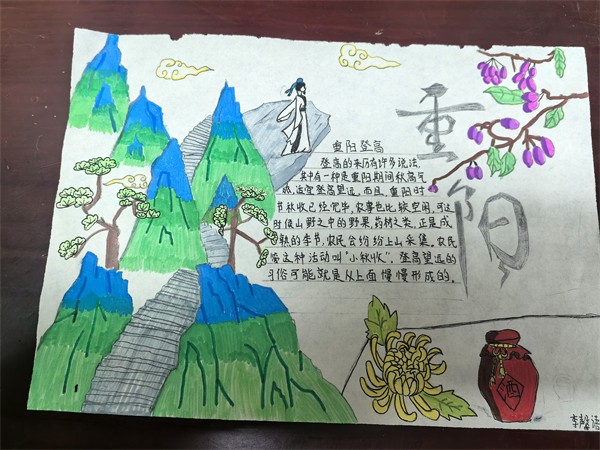 重阳
重阳登高
登高的来历有许多说法,
其中有一种是重阳期间秋高气
爽,适宜登高望远。而且,重阳时
节秋收已经完毕,农事也比较空闲,可这
时候山野之中的野果,药材之类,正是成
熟的季节,农民会纷纷上山采集,农民
客这种活动叫"小秋收"。登高望远的
习俗可能就是从上面慢慢形成的。
酒
李馨语